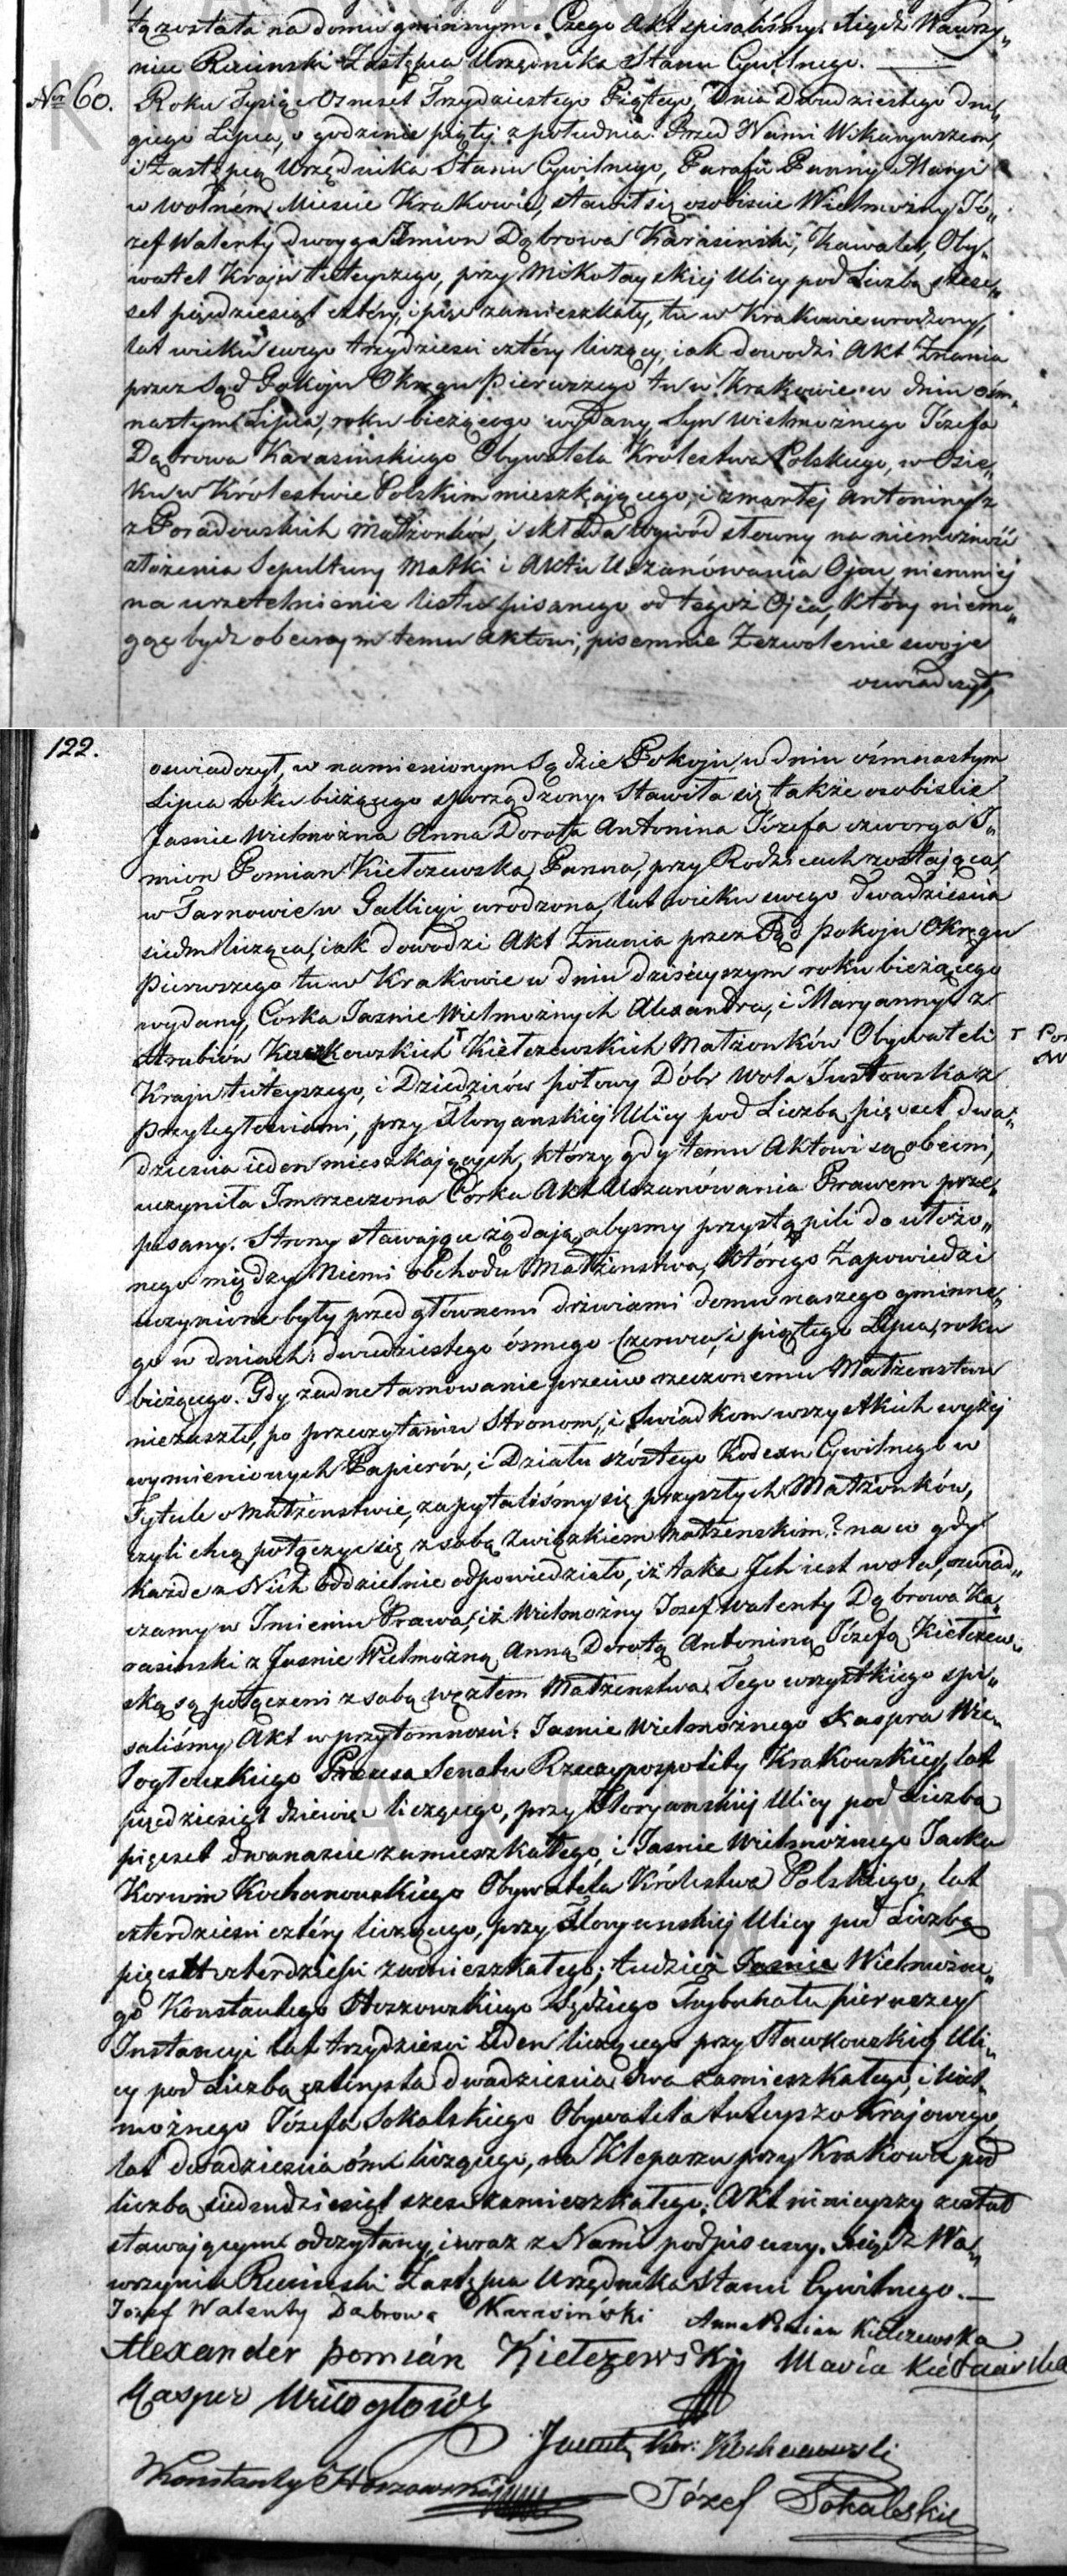 tą została na domu gminnym. Czego Akt spisaliśmy. Xiądz Wawrzy„
niec Ruciński Zastępca Urzędnika Stanu Cywilnego.
Nro 60. Roku Tysiąc Ośmset Trzydziestego Piątego, Dnia Dwudziestego dru„
giego Lipca, o godzinie piątej z południa. Przed Nami Wikaryuszem,
i Zastępcą Urzędnika Stanu Cywilnego, Parafii Panny Maryi
w wolném Mieście Krakowie, stawił się osobiście Wielmożny Jó„
zef Walenty dwoyga Imion Dąbrowa Karasinski, Kawaler, Oby„
watel Kraju tuteyszego, przy Mikołayskiej Ulicy pod Liczbą sześć„
set pięćdziesiąt cztéry, i pięć zamieszkały, tu w Krakowie urodzony,
lat wieku swego trzydzieści cztéry liczący, iak dowodzi Akt Znania
przez Sąd Pokoju Okręgu Pierwszego tu w Krakowie w dniu ośm„
nastym Lipca, roku bieżącego wydany, Syn Wielmożnego Józefa
Dąbrowa Karasińskiego Obywatela Królestwa Polskiego, w Osie„
ku w Królestwie Polskim mieszkaiącego, i zmarłej Antoniny z
z Poradowskich Małżonków, i składa wywód słowny na niemożność
złożenia Sepultury Matki i Aktu Uszanówania Ojca, niemniej
na urzetelnienie listu pisanego od tegoż Ojca, który niemo„
gąc bydz obecnym temu Aktowi, pisemnie Zezwolenie swoje
oswiadczył,
122.
oswiadczył, w namienionym Sądzie Pokoju w dniu ośmnastym
Lipca roku bieżącego sporządzony. Stawiła się także osobiście
Jasnie Wielmożna Anna Dorota Antonina Józefa czworga I„
mion Pomian Kiełczewska, Panna, przy Rodzicach zostająca,
w Tarnowie w Gallicyi urodzona, lat wieku swego dwadzieścia
siedm licząca, iak dowodzi Akt Znania przez Sąd Pokoju Okręgu
Pierwszego tu w Krakowie w dniu dzisieyszym roku bieżącego
wydany, Córka Jasnie Wielmożnych Alexandra, i Maryanny z
Hrabiów Kuczkowskich Kiełczewskich Małżonków Obywateli
Kraju tuteyszego, i Dziedziców połowy Dóbr Wola Justowska z
Przyległościami, przy Floryanskiej Ulicy pod Liczbą pięćset dwa„
dzieścia ieden mieszkających, którzy gdy temu Aktowi są obecni,
uczyniła Im rzeczona Córka Akt Uszanówania Prawem prze„
pisany. Strony stawające żądają, abysmy przystąpili do ułożo„
nego między Niemi obchodu Małżeństwa, którego Zapowiedzi
uczynione były przed głównemi drzwiami domu naszego gminne„
go w dniach: dwudziestego ósmego Czerwca, i piątego Lipca, roku
bieżącego. Gdy żadne tamowanie przeciw rzeczonemu Małżeństwu
niezaszło, po przeczytaniu Stronom, i Swiadkom wszystkich wyżéj
wymienionych Papierów, i Działu szóstego Kodexu Cywilnego w
Tytule o Małżeństwie, zapytaliśmy się przyszłych Małżonków,
czyli chcą połączyć się z sobą Związkiem małżenskim? na co gdy
każde z Nich oddzielnie odpowiedziało, iż taka Ich iest wola, oswiad„
czamy w Imieniu Prawa, iż Wielmożny Józef Walenty Dąbrowa Ka„
rasinski z Jasnie Wielmożną Anną Dorotą Antoniną Józefą Kiełczew„
ską są połączeni z sobą węzłem Małżenstwa. Tego wszystkiego spi„
saliśmy Akt w przytomności: Jasnie Wielmożnego Kaspra Wie„
logłowskiego Prezesa Senatu Rzeczypospolitey Krakowskiéj, lat
pięćdziesiąt dziewięć liczącego, przy Floryanskiéj Ulicy pod Liczbą
pięćset dwanaście zamieszkałego, i Jasnie Wielmożnego Jacka
Korwin Kochanowskiego Obywatela Królestwa Polskiego, lat
czterdzieści cztéry liczącego, przy Floryanskiej Ulicy pod Liczbą
pięćset czterdzieści zamieszkałego; tudzież Jasnie Wielmożne„
go Konstantego Hoszowskiego Sędziego Trybunału pierwszey
Instancyi lat trzydzieści ieden liczącego przy Sławkowskiej Uli„
cy pod Liczbą czterysta dwadzieścia dwa zamieszkałego, i Wiel„
możnego Józefa Sokalskiego Obywatela tuteyszo Krajowego
lat dwadzieścia óm liczącego, na Kleparzu przy Krakowie pod
liczbą siedmdziesiąt sześć zamieszkałego. Akt ninieyszy został
stawającym odczytany, i wraz z Nami podpisany. Xiądz Wa„
wrzyniec Ruciński Zastępca Urzędnika Stanu Cywilnego.
Józef Walenty Dąbrowa Karasiński Anna Pomian Kiełczewska
Alexander Pomián Kiełczewskij Maria Kiełczewska
Kasper Wielogłowski
Jacenty Kor: Kochanowski
Konstanty Hoszowski Józef Sokalski